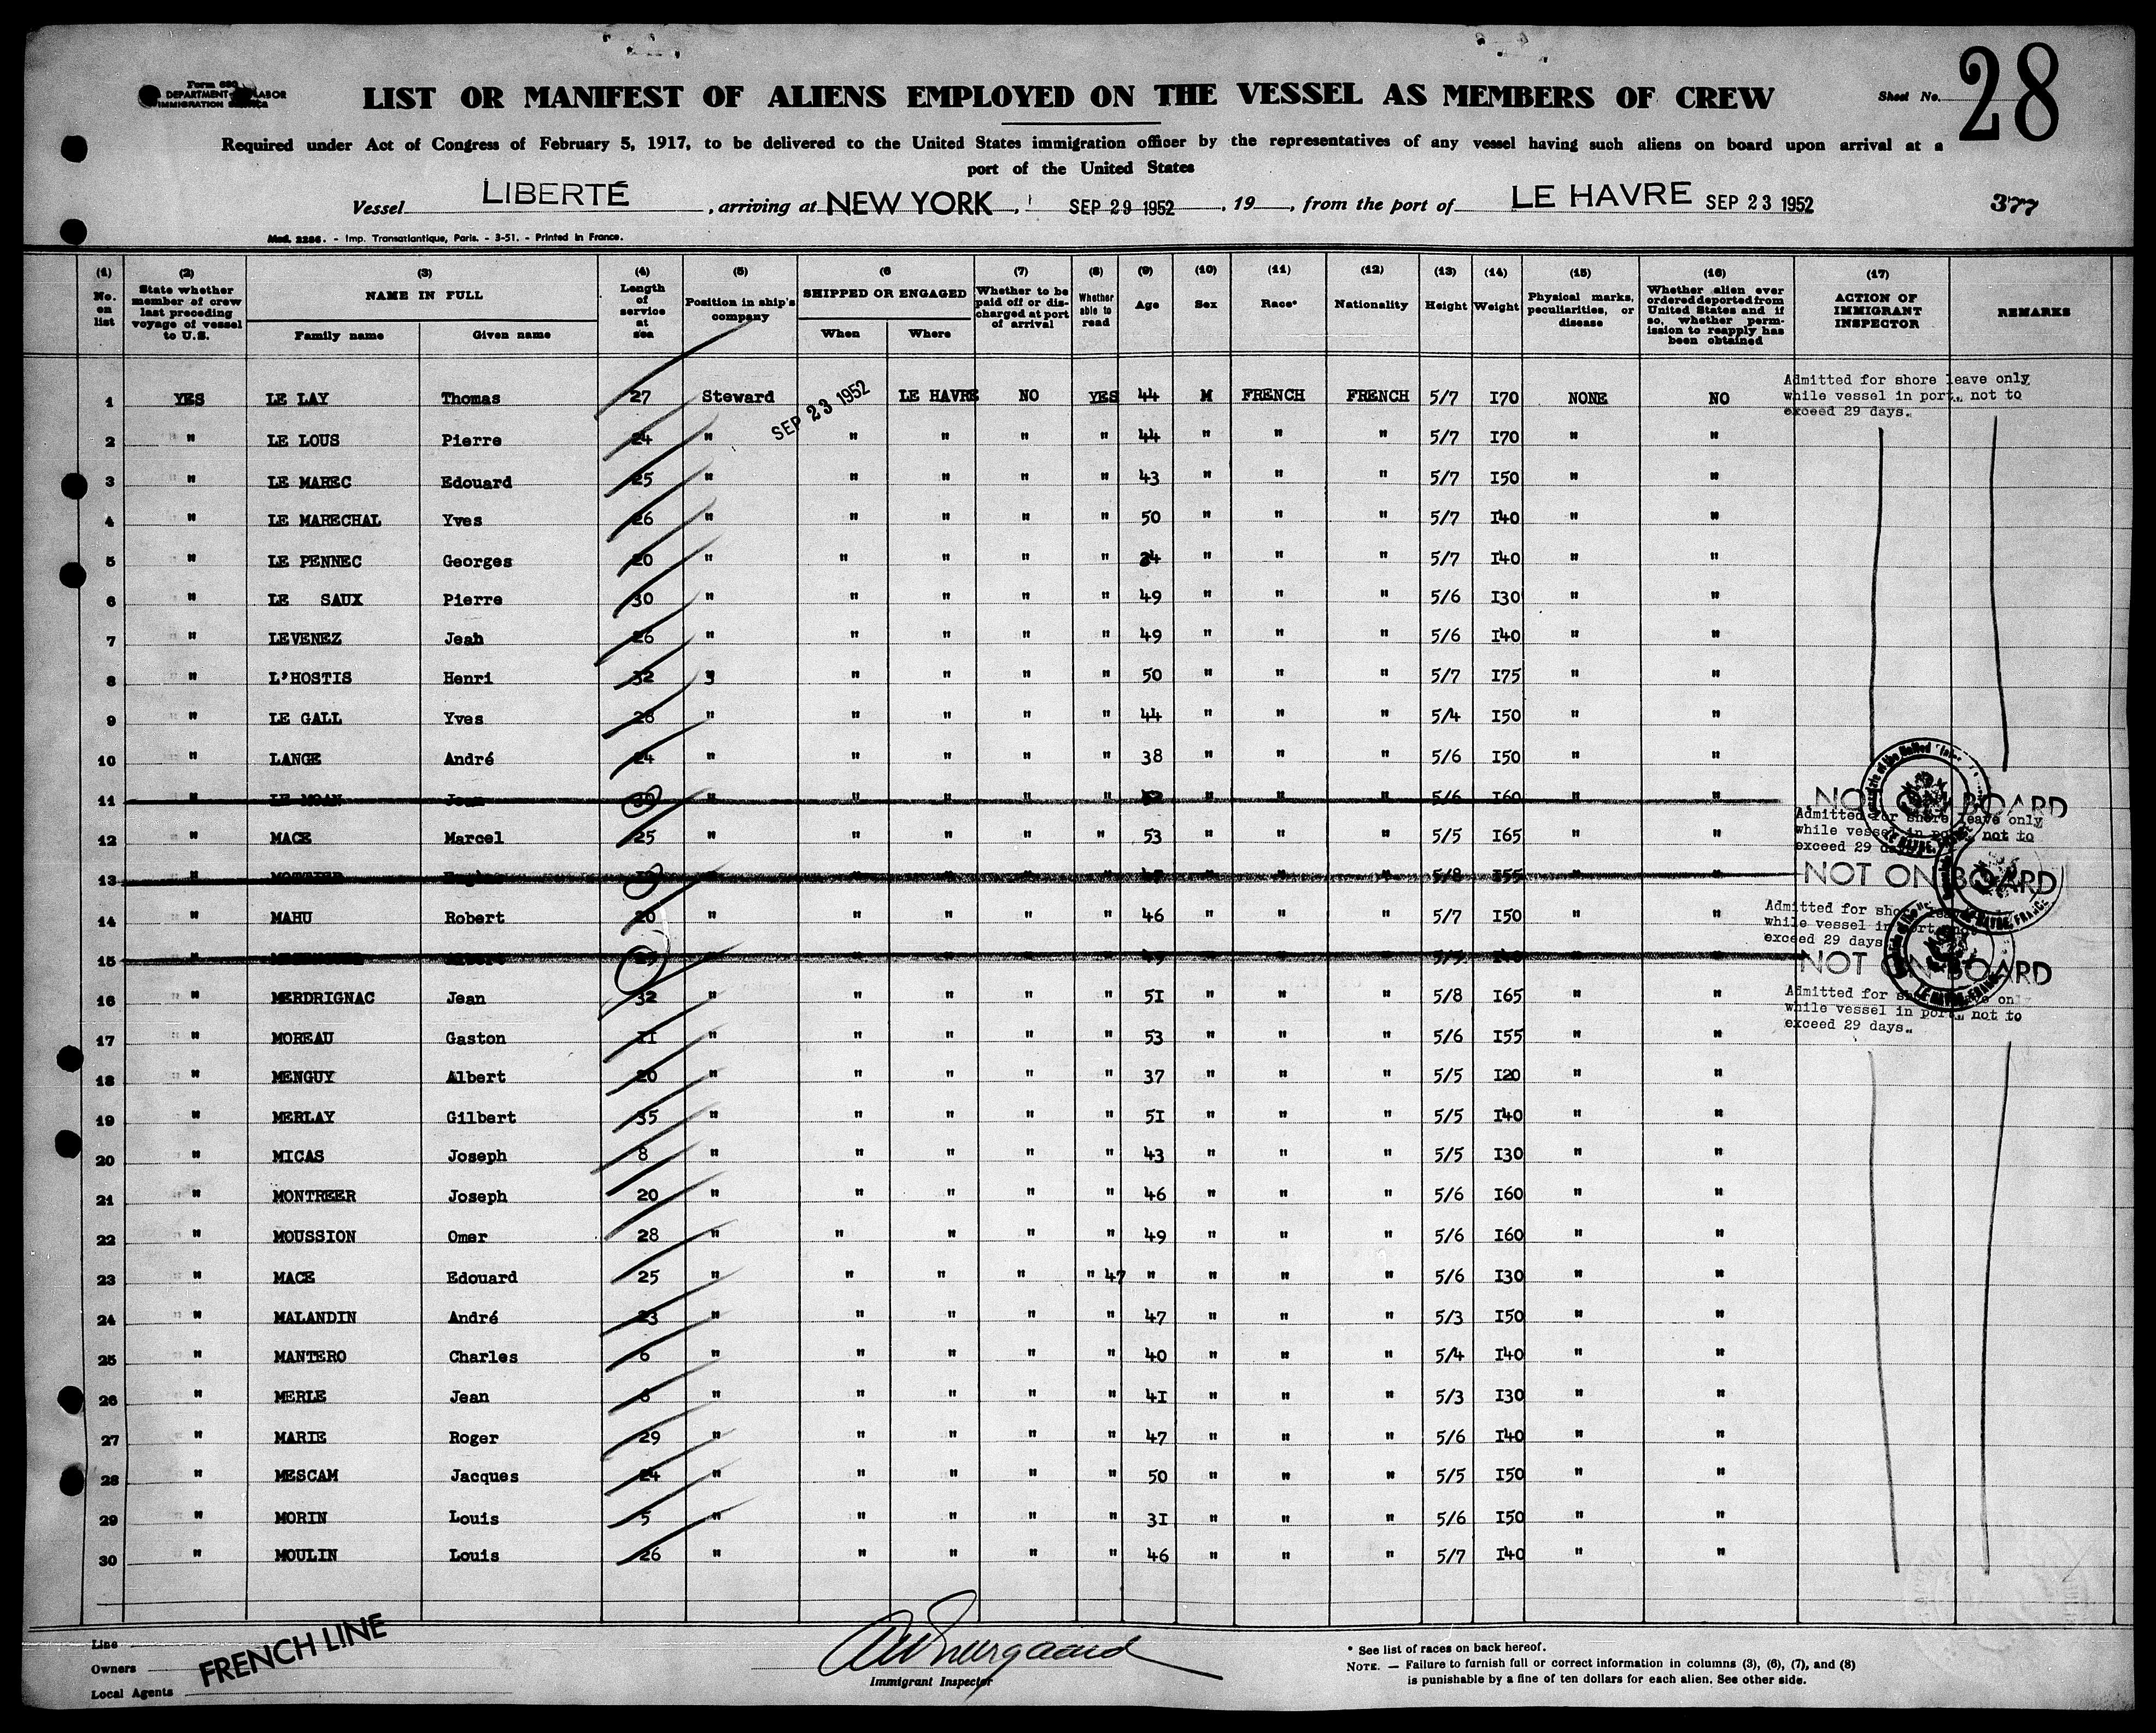 Form 680
DEPARTMENT LABOR
IMMIGRATION SERVICE
LIST OR MANIFEST OF ALIENS EMPLOYED ON THE VESSEL AS MEMBERS OF CREW
Sheet No. 28
Required under Act of Congress of February 5, 1917, to be delivered to the United States immigration officer by the representatives of any vessel having such aliens on board upon arrival at a
port of the United States
Vessel LIBERTÉ, arriving at NEW YORK, SEP 29 1952, 19 , from the port of LE HAVRE SEP 23 1952 377
Mod. 2286. - Imp. Transatlantique, Paris. - 3-51. - Printed in France.
(1) No. on list
(2) State whether member of crew last preceding voyage of vessel to U.S.
(3) NAME IN FULL Family name Given name
(4) Length of service at sea
(5) Position in ship's company
(6 SHIPPED OR ENGAGED When Where
(7) Whether to be paid off or discharged at port of arrival
(8) Whether able to read
(9) Age
(10) Sex
(11) Race*
(12) Nationality
(13) Height
(14) Weight
(15) Physical marks, peculiarities, or disease
(16) Whether alien ever ordered deported from United States and if so, whether permission to reapply has been obtained
(17) ACTION OF IMMIGRANT INSPECTOR
REMARKS
1 YES LE LAY Thomas 27 Steward SEP 23 1952 LE HAVRE NO YES 44 M FRENCH FRENCH 5/7 I70 NONE NO Admitted for shore leave only while vessel in port, not to exceed 29 days.
2 " LE LOUS Pierre 24 " " " " " 44 " " " 5/7 I70 " "
3 " LE MAREC Edouard 25 " " " " " 43 " " " 5/7 I50 " "
4 " LE MARECHAL Yves 26 " " " " " 50 " " " 5/7 I40 " "
5 " LE PENNEC Georges 20 " " " " " " " " 5/7 I40 " "
6 " LE SAUX Pierre 30 " " " " " 49 " " " 5/6 I30 " "
7 " LEVENEZ Jean 26 " " " " " 49 " " " 5/6 I40 " "
8 " L'HOSTIS Henri 32 " " " " " 50 " " " 5/7 I75 " "
9 " LE GALL Yves 28 " " " " " 44 " " " 5/4 I50 " "
10 " LANGE André 24 " " " " " 38 " " " 5/6 I50 " "
11 " LE MOAN Jean " " " " " 52 " " " 5/6 I60 " " NOT ON BOARD
12 " MACE Marcel 25 " " " " " 53 " " " 5/5 I65 " " Admitted for shore leave only while vessel in port, not to exceed 29 days.
13 " " " " " " " " " 5/8 I55 " " NOT ON BOARD
14 " MAHU Robert 20 " " " " " 46 " " " 5/7 I50 " " Admitted for shore leave while vessel in port, not exceed 29 days
15 " Albert " " " " " " " " 5/5 I40 " " NOT ON BOARD
16 " MERDRIGNAC Jean 32 " " " " " 5I " " " 5/8 I65 " " Admitted for shore leave only while vessel in port, not to exceed 29 days.
17 " MOREAU Gaston II " " " " " 53 " " " 5/6 I55 " "
18 " MENGUY Albert 20 " " " " " 37 " " " 5/5 I20 " "
19 " MERLAY Gilbert 35 " " " " " 5I " " " 5/5 I40 " "
20 " MICAS Joseph 8 " " " " " 43 " " " 5/5 I30 " "
21 " MONTREER Joseph 20 " " " " " 46 " " " 5/6 I60 " "
22 " MOUSSION Omer 28 " " " " " 49 " " " 5/6 I60 " "
23 " MACE Edouard 25 " " " " " 47 " " " " 5/6 I30 " "
24 " MALANDIN André 23 " " " " " 47 " " " 5/3 I50 " "
25 " MANTERO Charles 6 " " " " " 40 " " " 5/4 I40 " "
26 " MERLE Jean 6 " " " " " 4I " " " 5/3 I30 " "
27 " MARIE Roger 29 " " " " " 47 " " " 5/6 I40 " "
28 " MESCAM Jacques 24 " " " " " 50 " " " 5/5 I50 " "
29 " MORIN Louis 5 " " " " " 3I " " " 5/6 I50 " "
30 " MOULIN Louis 26 " " " " " 46 " " " 5/7 I40 " "
Line
Owners FRENCH LINE
Local Agents
Immigrant Inspector
* See list of races on back hereof.
NOTE. — Failure to furnish full or correct information in columns (3), (6), (7), and (8)
is punishable by a fine of ten dollars for each alien. See other side.